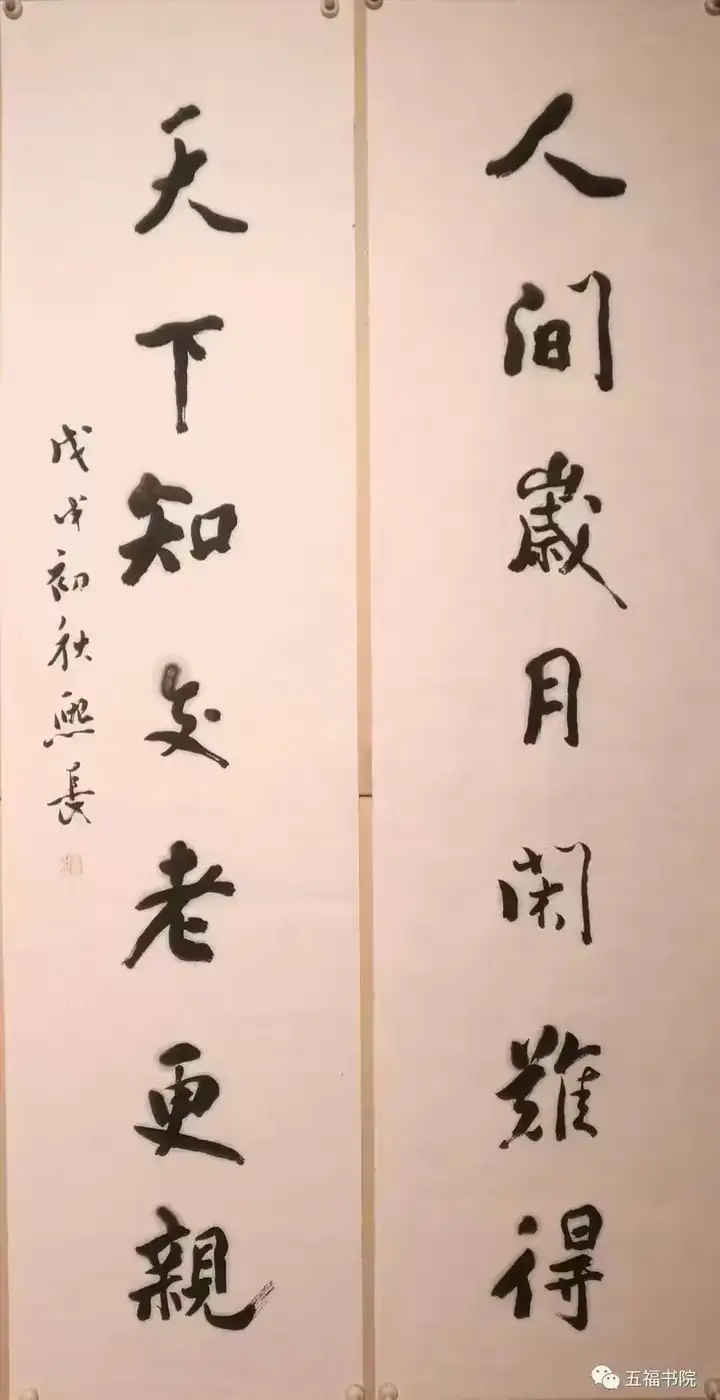 人間歲月閑難得
天下知交老更親
戊戌初秋熙長
五福书院